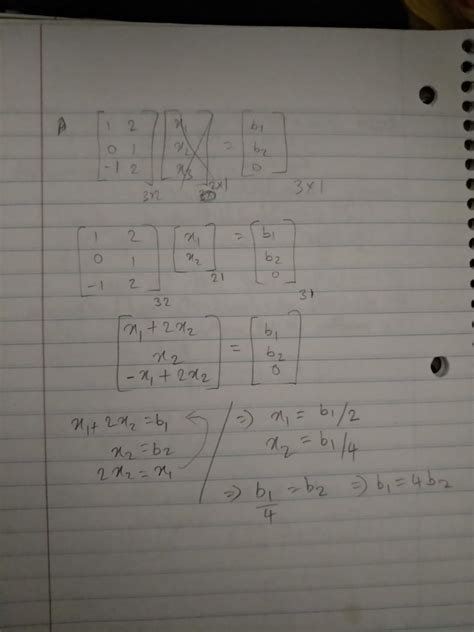 A [1 2; 0 1; -1 2]3x2 [x1; x2; x3]2x1 = [b1; b2; 0]3x1
[1 2; 0 1; -1 2]32 [x1; x2]21 = [b1; b2; 0]31
[x1 + 2x2; x2; -x1 + 2x2] = [b1; b2; 0]
x1 + 2x2 = b1
x2 = b2
2x2 = x1
=> x1 = b1/2
x2 = b1/4
=> b1/4 = b2 => b1 = 4b2